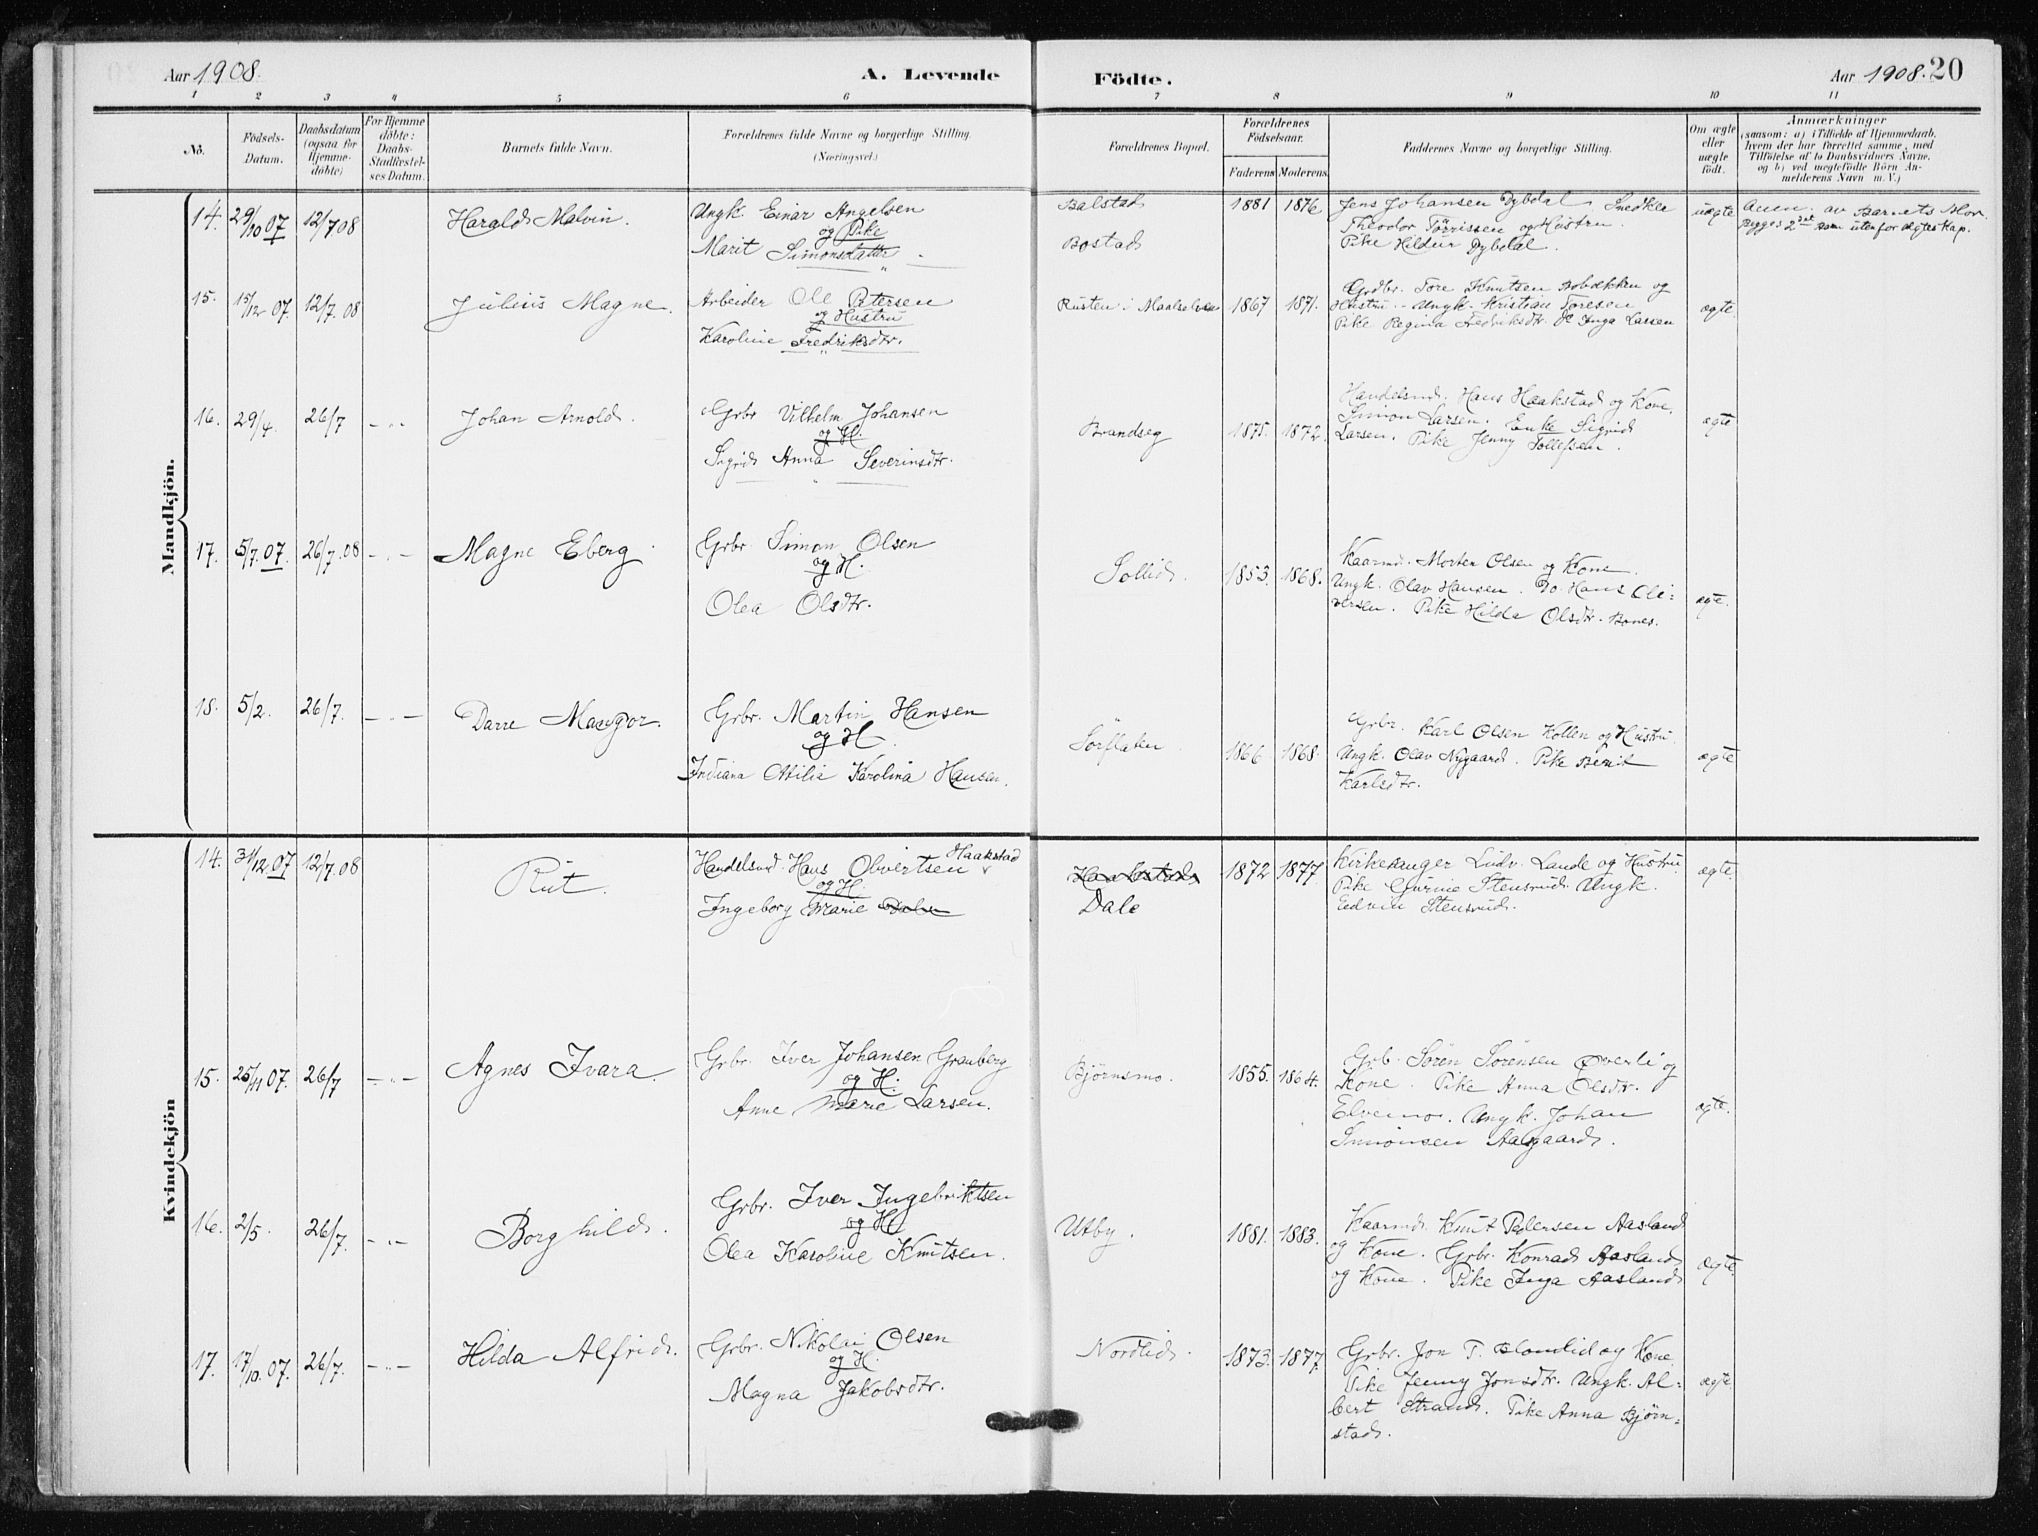 Aar 1908. A. Levende Födte. Aar 1908. 20
1 2 3 4 5 6 7 8 9 10 11
No. Födsels-Datum. Daabsdatum (ogsaa for Hjemmedöbte) For Hjemmedöbte: Daabs-Stadfæstelses Datum. Barnets fulde Navn. Forældrenes fulde Navne og borgerlige Stilling. (Næringsvei.) Forældrenes Bopæl. Forældrenes Födselsaar. Faderens Moderens Faddernes Navne og borgerlige Stilling. Om ægte eller uægte födt. Anmærkninger (saasom: a) i Tilfælde af Hjemmedaab, hvem der har forrettet samme, med Tilföielse af to Daabsvidners Navne, og b) ved uægtefödte Börn Anmelderens Navn m. V.)
Mandkjön.
14. 29/10 07 12/7 08 Harald Malvin. Ungk. Einar Angelsen Balstad 1881 1876 Jens Johansen Dybdal Snedker uægte Anm. av Barnets Mor.
og Pike Theodor Tørrissen og Hustru. Bygges 2det som utenfor Ægteskap.
Marit Simonsdatter Bostad Pike Hildur Dybdal.
15. 15/12 07. 12/7. 08 Julius Magne. Arbeider Ole Petersen Rusten i Maalselven 1867 1871. Grdbr. Tore Knutsen og
og Hustru Hustru. - Ungk. Kristian Toresen ægte.
Karoline Fredriksdtr. Pike Regina Fredriksdtr. Inga Larsen
16. 29/4. 26/7 - " - Johan Arnold. Grbr Vilhelm Johansen Handelsmd. Hans Haakstad og Kone.
og H Brandseg 1875. 1872. Simon Larsen. Enke Sigrid ægte
Sigrid Anna Severinsdtr. Larsen. Pike Jenny Tollefsen.
17. 5/7. 07. 26/7. 08 - " - Magne Eberg Grbr Simon Olsen Kaarmd. Morten Olsen og Kone.
og H. Sollid. 1853. 1868. Ungk. Olav Hansen. Do. Hans Oli-
Olea Olsdtr. versen. Pike Hilda Olsdtr. Bones. ægte.
18. 5/2. 26/7. - " - Darre Mangor. Grbr. Martin Hansen Grbr. Karl Olsen Kollen og Hustru
og H. Sörflaten 1866 1868. Ungk. Olav Nygaard. Pike Berit ægte
Indiana Otilie Karolina Hansen. Karlsdtr.
Kvindekjön
14. 31/12 07 12/7 08 Rut. Handelsmd. Hans Olvertsen Haakstad Haakstad 1872 1877 Kirkesanger Ludv. Lande og Hustru ægte.
og H. Dale Pike Gurine Stensrud. Ungk.
Ingeborg Marie Dale Edvin Stensrud.
15. 25/11 07. 26/7 - " - Agnes Ivara. Grbr. Iver Johansen Granberg Björnsmo. 1855. 1864. Grb. Sören Sörensen Øverli og
og H. Kone. Pike Anna Olsdtr.
Anne Marie Larsen. Elvemo. Ungk. Johan ægte.
Simonsen Aasgaard.
16. 2/5. 26/7. - " - Borghild. Grbr. Iver Ingebriktsen Utby. 1881. 1883. Kaarmd. Knut Pedersen Aasland
og H og Kone. Grbr. Konrad Aasland ægte.
Olea Karoline Knutsen. og Kone. Pike Inga Aasland
17. 17/10. 07. 26/7. - " - Hilda Alfrid. Grbr. Nikolai Olsen Nordlid. 1873. 1877. Grbr. Jon T. og Kone.
og H. Pike Jenny Jonsdtr. Ungk. Al- ægte
Magna Jakobsdtr. bert Strand. Pike Anna Björn-
stad.